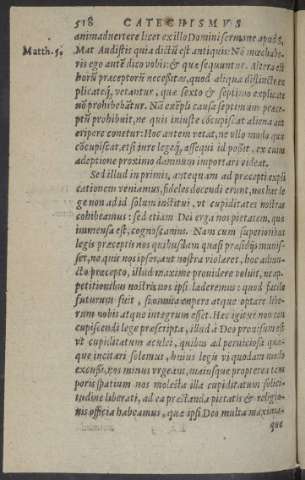 518 CATECHISMVS
animaduertere licet ex illo Domini sermone apud S.
Matth. 5. Mat Audistis quia dictũ est antiquis: Nõ mœchabe-
ris ego autẽ dico vobis: & quæ sequuntur. Altera est
horũ præceptorũ necessitas, quod aliqua distincte ex
plicateq́; vetantur, quæ sexto & septimo explicat
nõ prohibebãtur. Nã exẽpli causa septimum præce-
ptũ prohibuit, ne quis iniuste cõcupiscat aliena aut
eripere conetur: Hoc autem vetat, ne vllo modo quis
cõcupiscat, etsi iure legeq́; assequi id possit, ex cuius
adeptione proximo damnum importari videat.
Sed illud in primis, antequam ad præcepti expli
cationem veniamus, fideles docendi erunt, nos hac le
ge non ad id solum institui, vt cupiditates nostras
cohibeamus: sed etiam Dei erga nos pietatem, quæ
immensa est, cognoscamus. Nam cum superioribus
legis præceptis nos quibusdam quasi præsidijs munis-
set, ne quis nos ipsos, aut nostra violaret, hoc adiun-
cto præcepto, illud maxime prouidere voluit, ne ap-
petitionibus nostris nos ipsi læderemus: quod facile
futurum fuit, si omnia cupere atque optare libe-
rum nobis atque integrum esset. Hac igitur non con
cupiscendi lege præscripta, illud à Deo prouisum est
vt cupiditatum aculei, quibus ad perniciosa quæ-
que incitari solemus, huius legis vi quodam modo
excussi, nos minus vrgeant, maiusque propterea tem
poris spatium nos molesta illa cupiditatum solici-
tudine liberati, ad ea præstanda pietatis & religio-
nis officia habeamus, quæ ipsi Deo multa maxima-
que